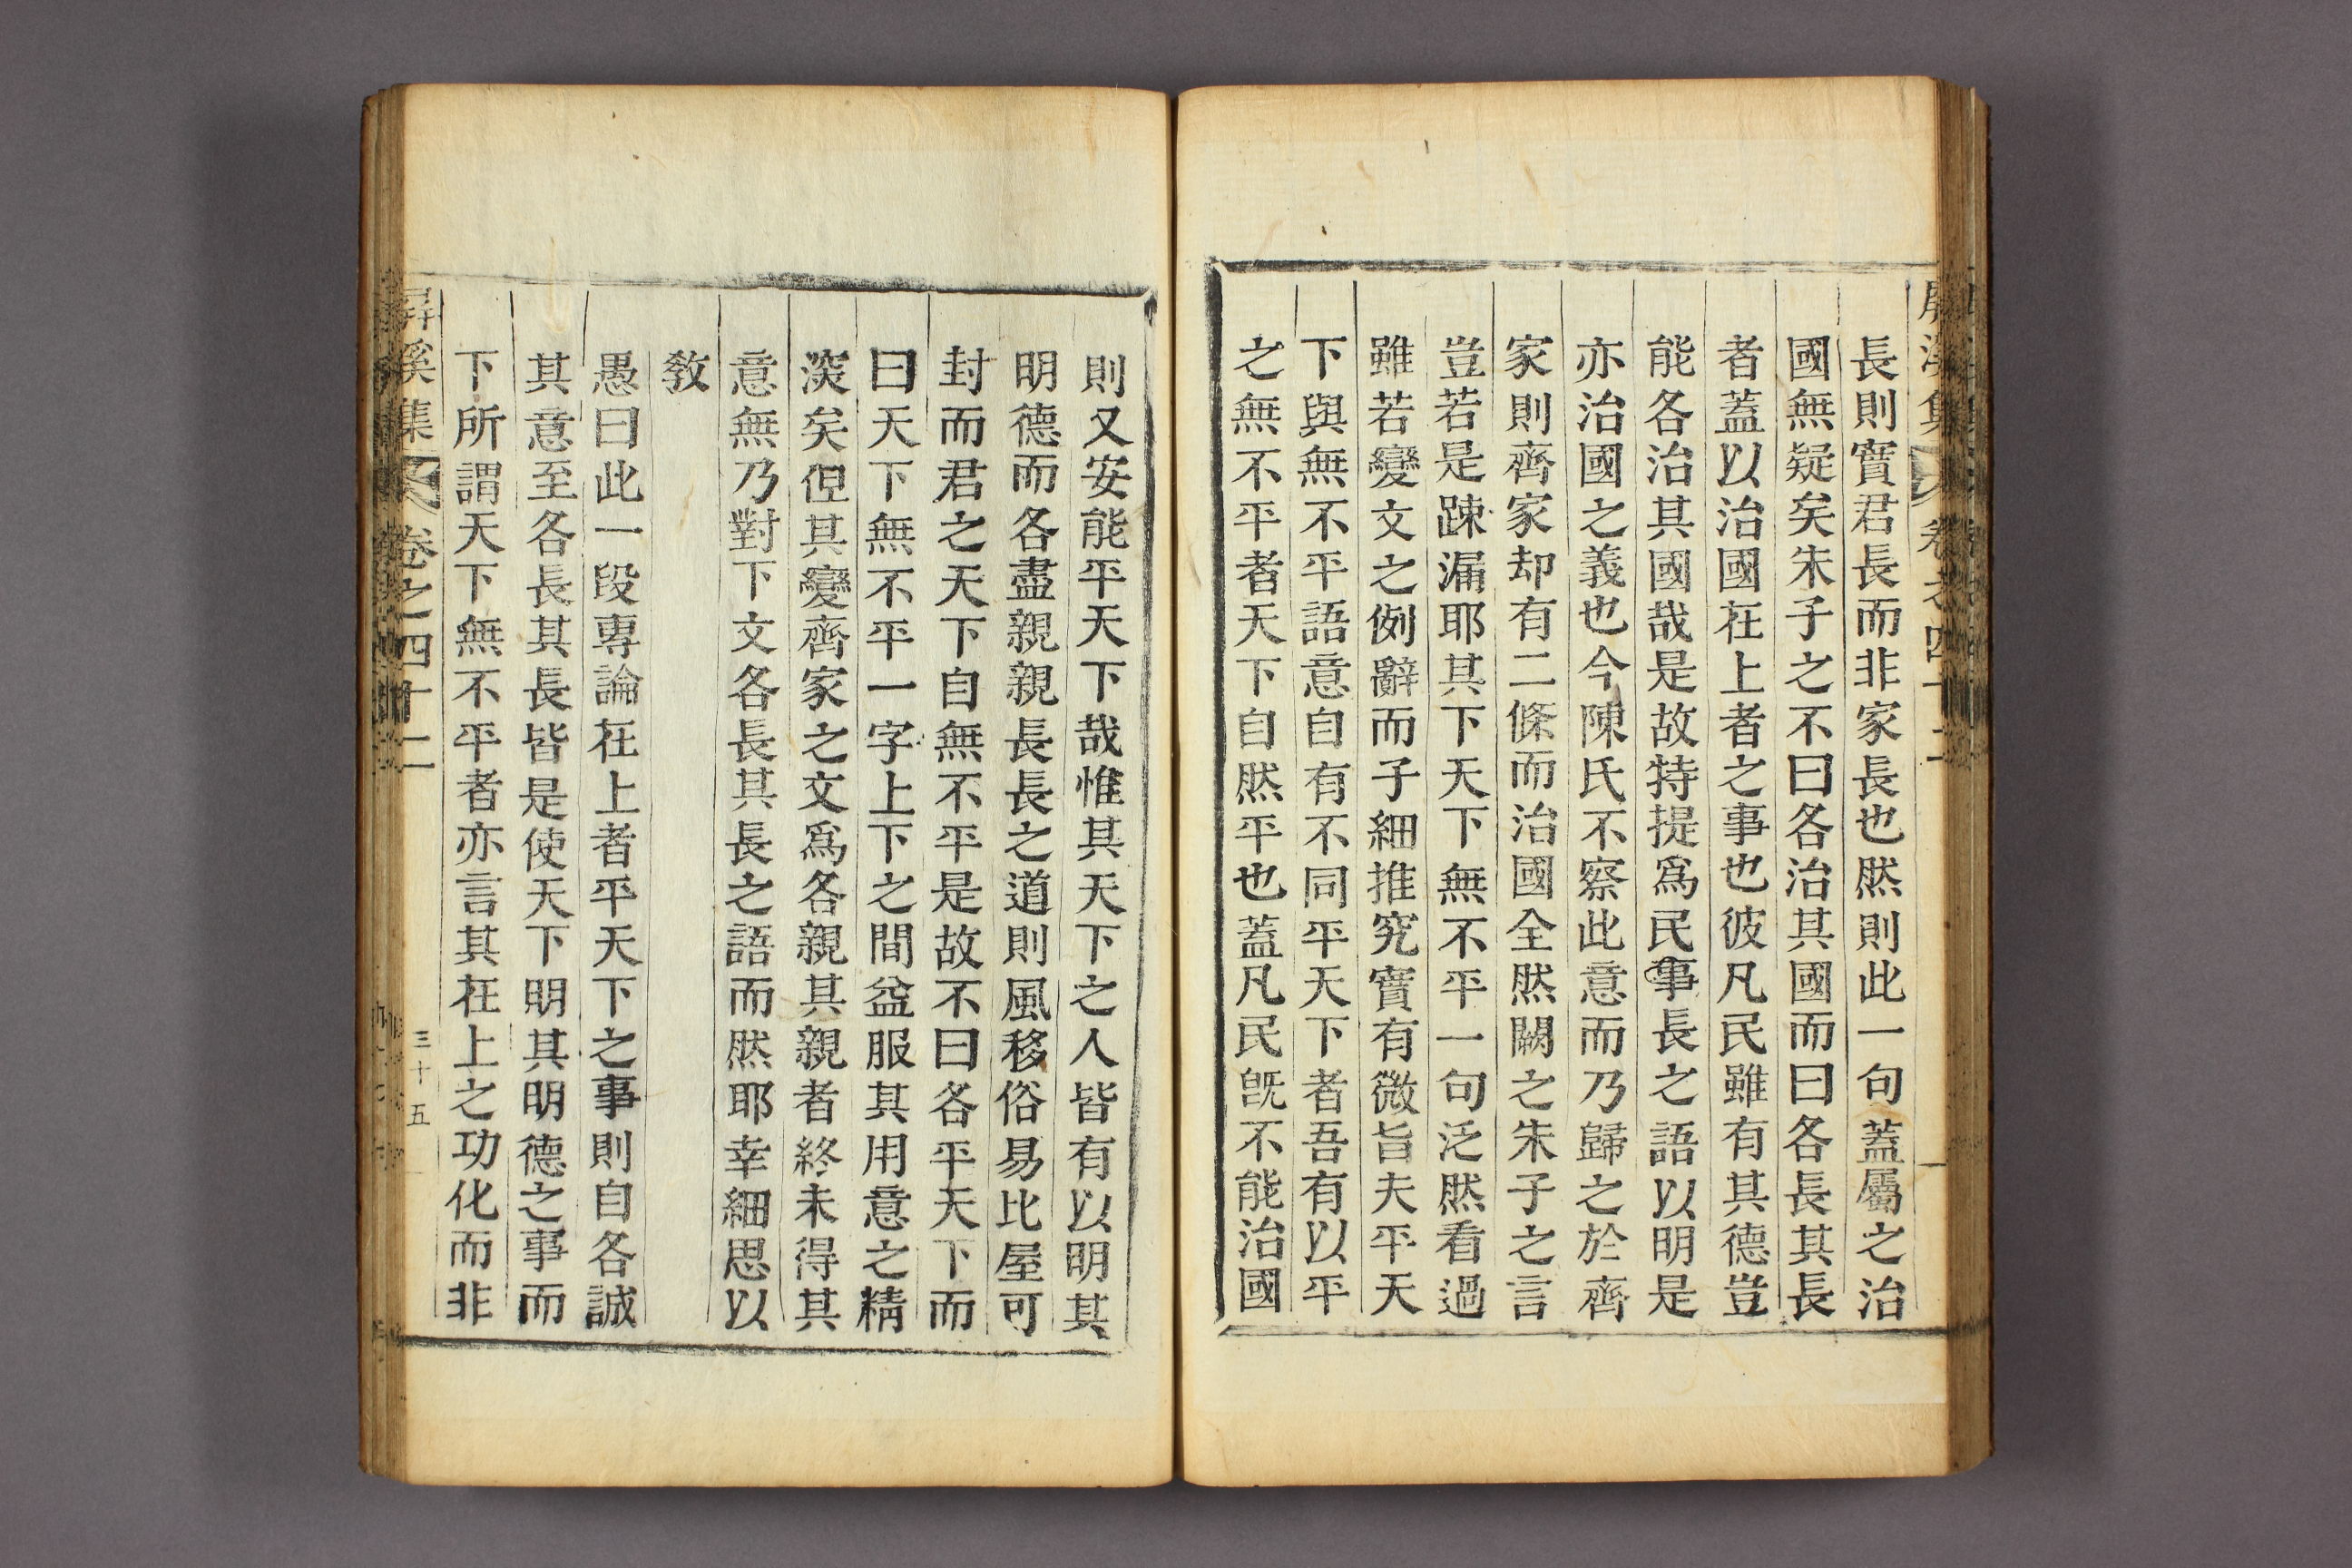 長則實君長而非家長也然則此一句蓋屬之治
國無疑矣朱子之不曰各治其國而曰各長其長
者蓋以治國在上者之事也彼凡民雖有其德豈
能各治其國哉是故特提爲民事長之語以明是
亦治國之義也今陳氏不察此意而乃歸之於齊
家則齊家却有二條而治國全然闕之朱子之言
豈若是踈漏耶其下天下無不平一句泛然看過
雖若變文之例辭而子細推究實有微旨夫平天
下與無不平語意自有不同平天下者吾有以平
之無不平者天下自然平也蓋凡民旣不能治國
則又安能平天下哉惟其天下之人皆有以明其
明德而各盡親親長長之道則風移俗易比屋可
封而君之天下自無不平是故不曰各平天下而
曰天下無不平一字上下之間益服其用意之精
深矣但其變齊家之文爲各親其親者終未得其
意無乃對下文各長其長之語而然耶幸細思以
敎
愚曰此一段專論在上者平天下之事則自各誠
其意至各長其長皆是使天下明其明德之事而
下所謂天下無不平者亦言其在上之功化而非
屛溪集 卷之四十二
三十五